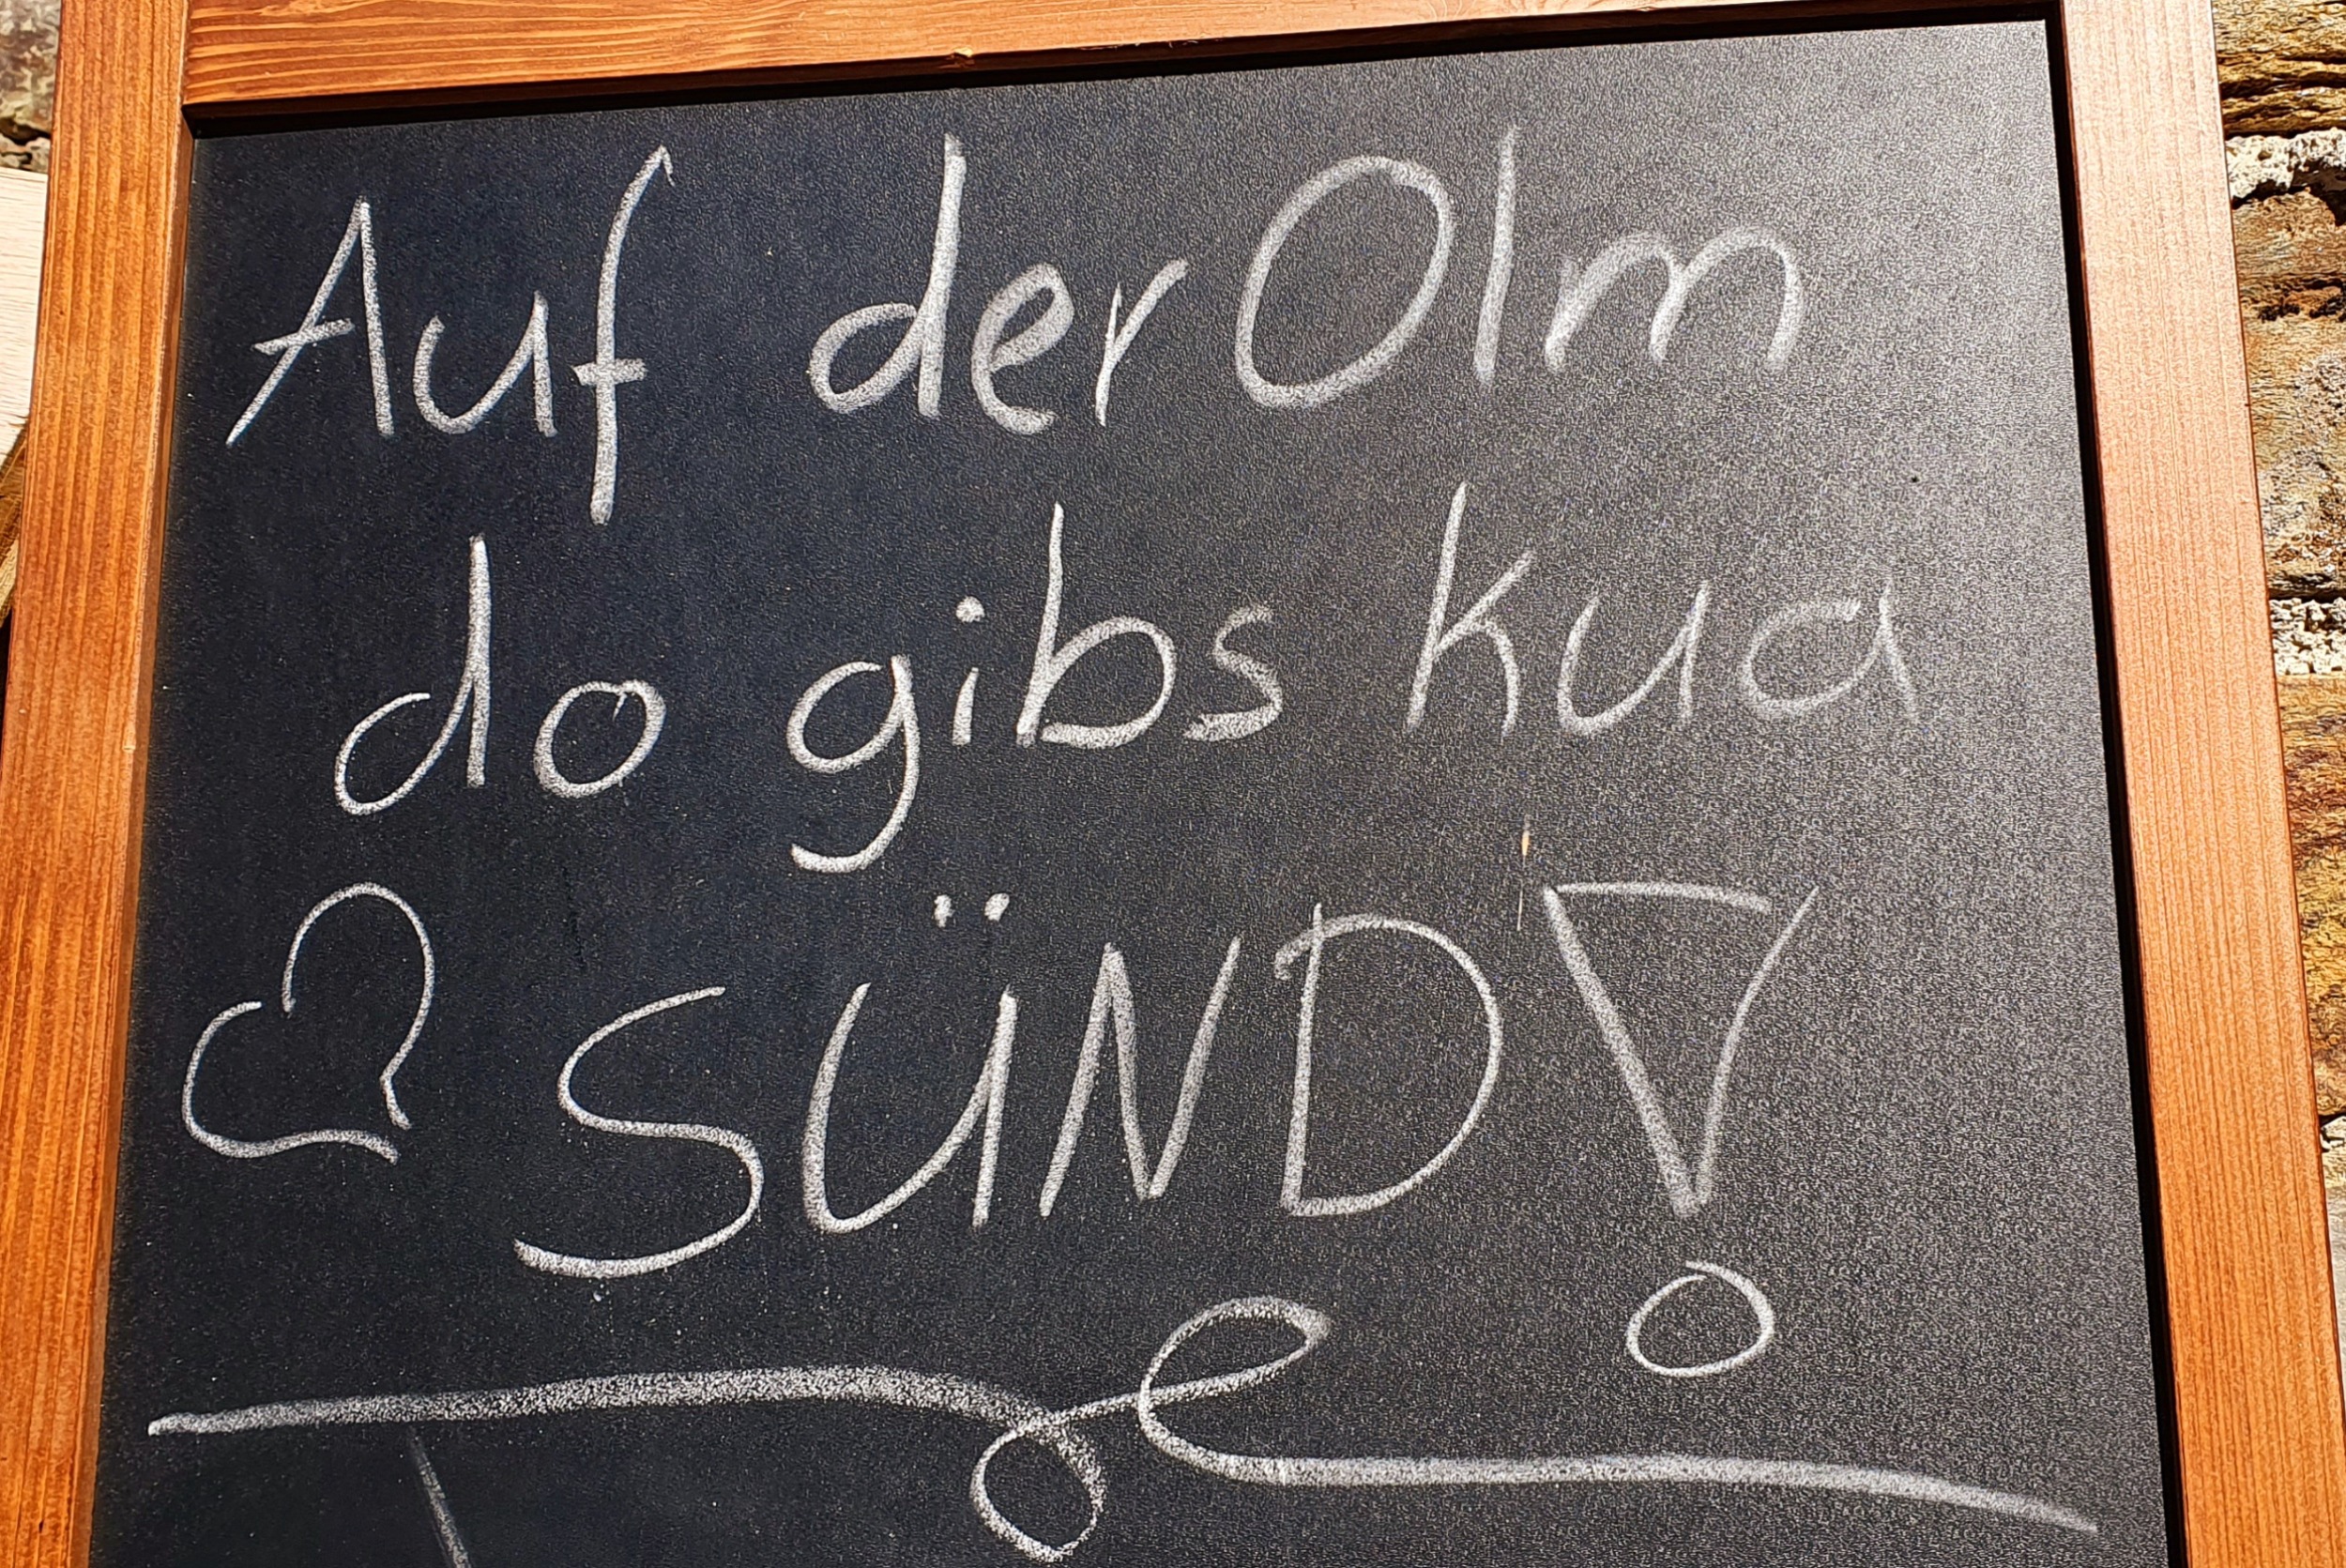 Auf der Olm
do gibs kua
SÜND!